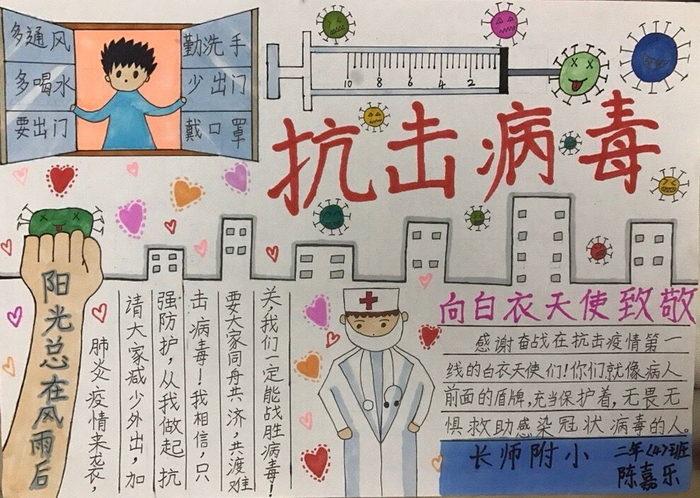 多通风
多喝水
要出门
勤洗手
少出门
戴口罩
10 8 6 4 2
抗击病毒
阳光总在风雨后
肺炎疫情来袭，
请大家减少外出，加
强防护，从我做起抗
击病毒！我相信，只
要大家同舟共济，共渡难
关，我们一定能战胜病毒！
向白衣天使致敬
感谢奋战在抗击疫情第一
线的白衣天使们！你们就像病人
前面的盾牌，充当保护着，无畏无
惧救助感染冠状病毒的人。
长师附小
二年（4）班
陈嘉乐